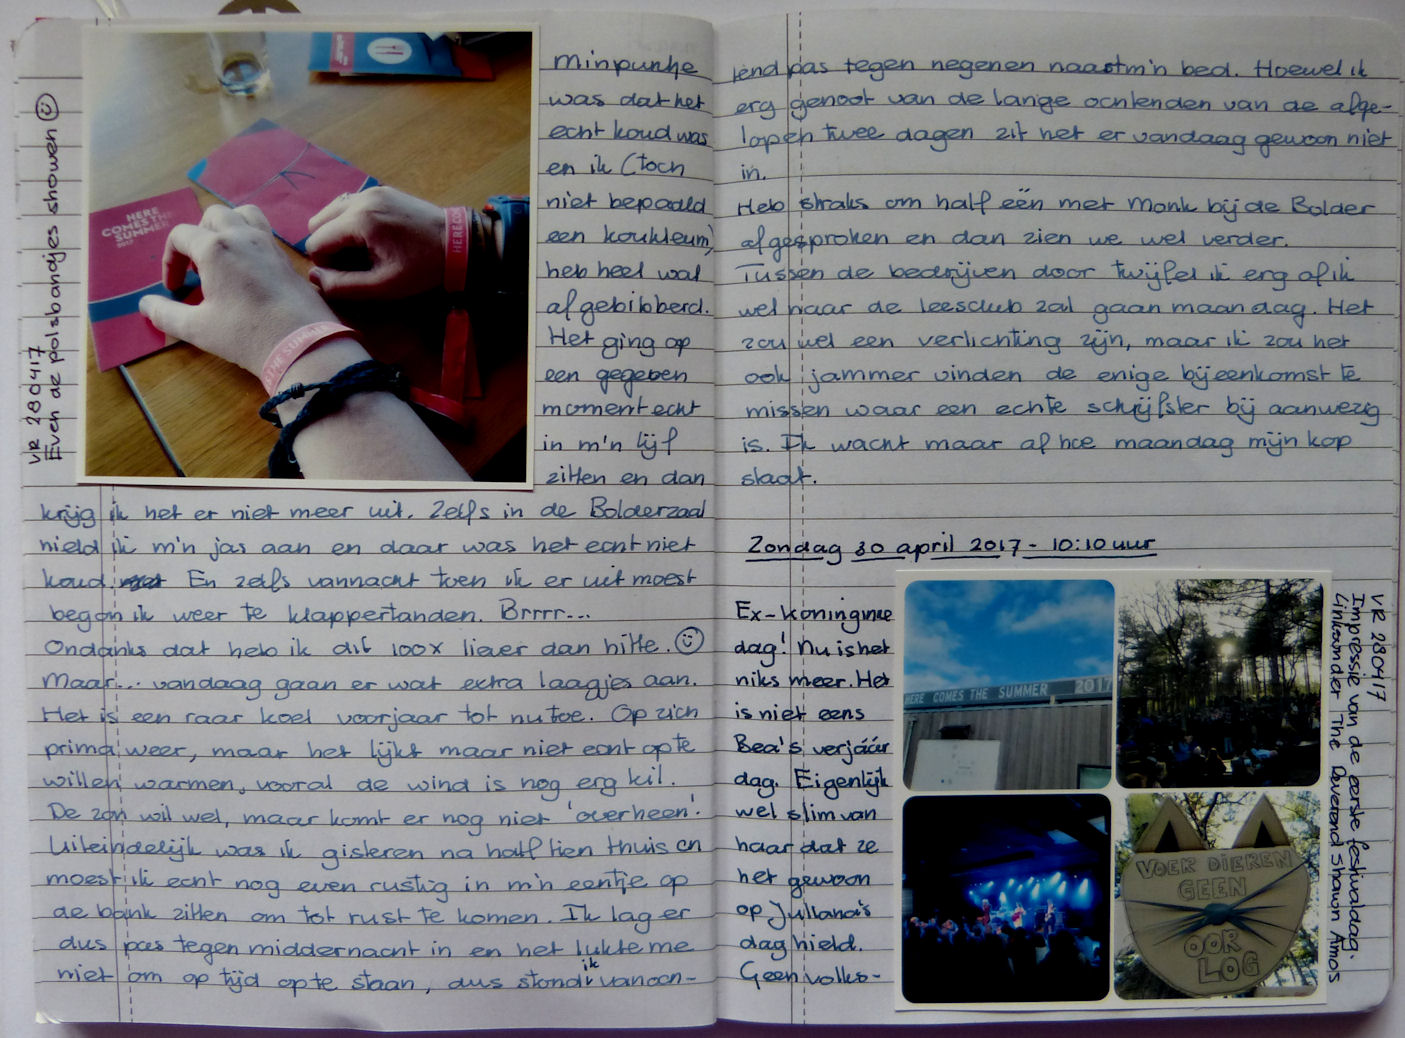 VR 280417
Even de polsbandjes showen
HERE
COMES THE
SUMMER
2017
HERE CO
Minpuntje
was dat het
echt koud was
en ik (toch
niet bepaald
een koukleum)
heb heel wat
afgebibberd.
Het ging op
een gegeven
moment echt
in m'n lijf
zitten en dan
krijg ik het er niet meer uit. Zelfs in de Bolderzaal
hield ik m'n jas aan en daar was het echt niet
koud. En zelfs vannacht toen ik er uit moest
begon ik weer te klappertanden. Brrrr...
Ondanks dat heb ik dit 100x liever dan hitte.
Maar... vandaag gaan er wat extra laagjes aan.
Het is een raar koel voorjaar tot nu toe. Op zich
prima weer, maar het lijkt maar niet echt op te
willen warmen, vooral de wind is nog erg kil.
De zon wil wel, maar komt er nog niet 'overheen'.
Uiteindelijk was ik gisteren na half tien thuis en
moest ik echt nog even rustig in m'n eentje op
de bank zitten om tot rust te komen. Ik lag er
dus pas tegen middernacht in en het lukte me
niet om op tijd op te staan, dus stond ik vanoch-
tend pas tegen negenen naast m'n bed. Hoewel ik
erg genoot van de lange ochtenden van de afge-
lopen twee dagen zit het er vandaag gewoon niet
in.
Heb straks om half één met Monk bij de Bolder
afgesproken en dan zien we wel verder.
Tussen de bedrijven door twijfel ik erg of ik
wel naar de leesclub zal gaan maandag. Het
zou wel een verlichting zijn, maar ik zou het
ook jammer vinden de enige bijeenkomst te
missen waar een echte schrijfster bij aanwezig
is. Ik wacht maar af hoe maandag mijn kop
staat.
Zondag 30 april 2017 - 10:10 uur
Ex-koninginne
dag! Nu is het
niks meer. Het
is niet eens
Bea's verjáár
dag. Eigenlijk
wel slim van
haar dat ze
het gewoon
op Juliana's
dag hield.
Geen volks-
HERE COMES THE SUMMER 2017
VOER DIEREN
GEEN
OOR
LOG
VR 280417
Impressie van de eerste festivaldag.
Linksonder The Reverend Shawn Amos